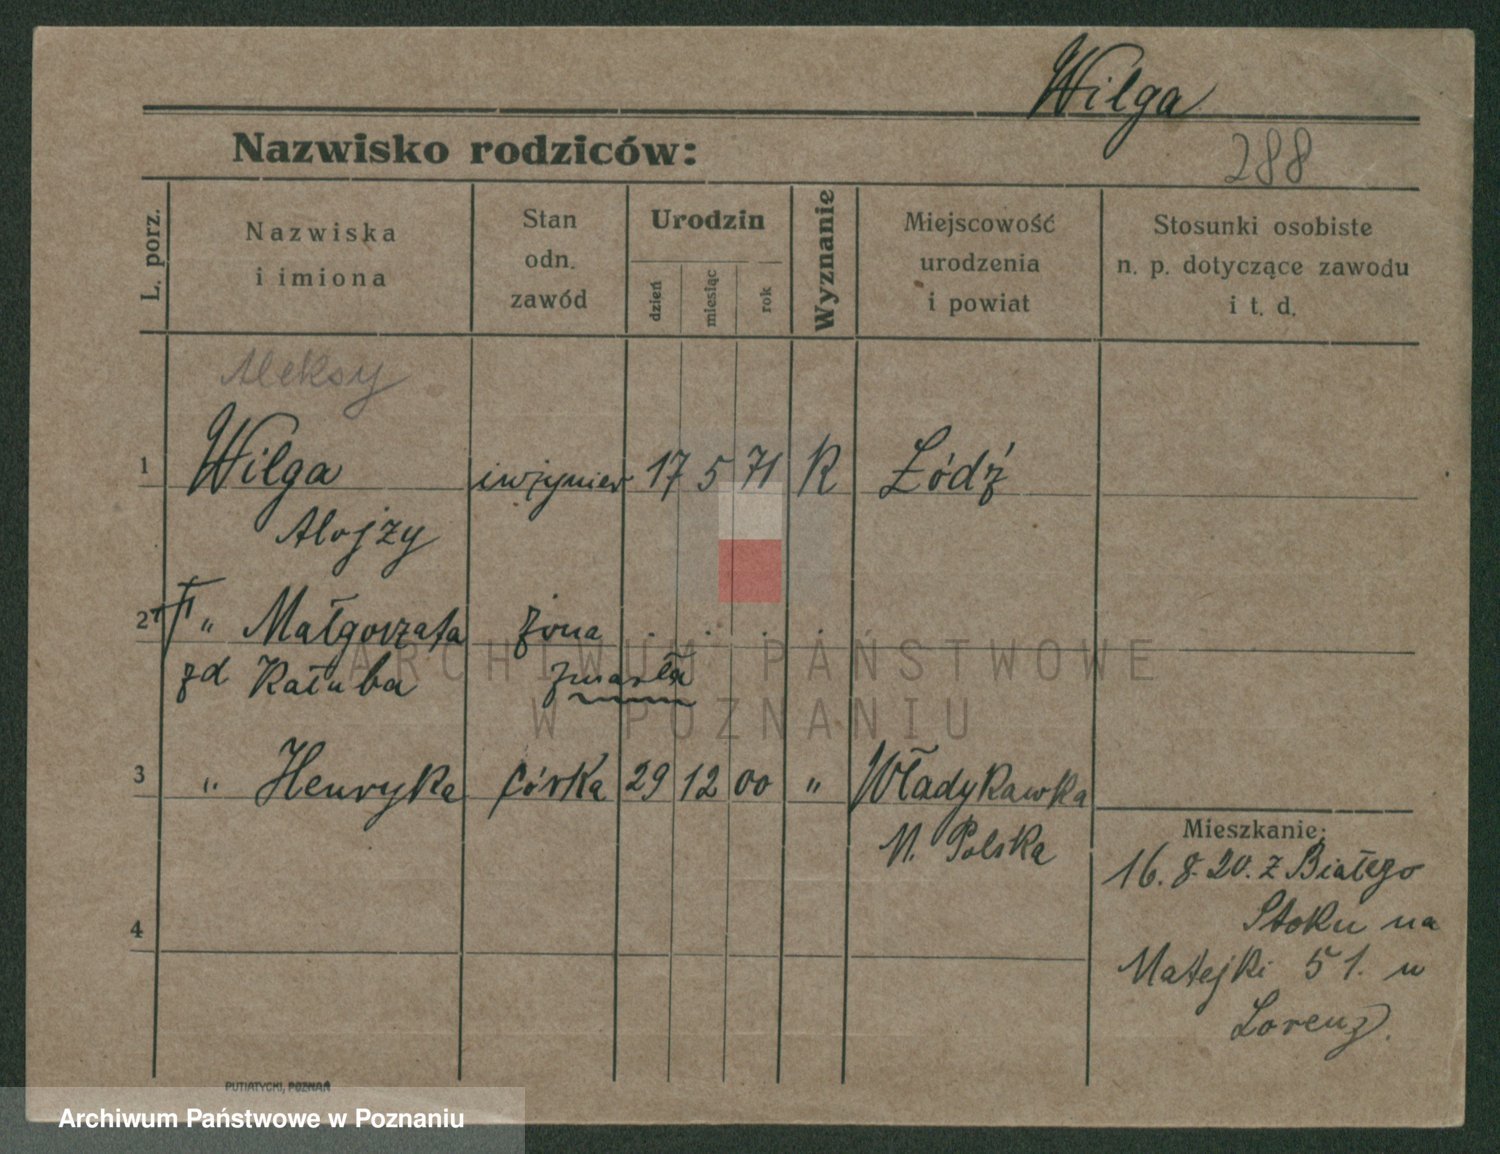 Wilga
Nazwisko rodziców:
288
L. porz.
Nazwiska
i imiona
Stan
odn.
zawód
Urodzin
dzień
miesiąc
rok
Wyznanie
Miejscowość
urodzenia
i powiat
Stosunki osobiste
n. p. dotyczące zawodu
i t. d.
Aleksy
1 Wilga inżynier 17 5 71 R Łódź
Alojzy
2 " Małgorzata żona
zd Kałuba zmarła
3 " Henryka córka 29 12 00 " Władykawka
N. Polska
Mieszkanie:
16. 8. 20. z Białego
Stoku na
4
Matejki 51. u
Lorenz.
PUTIATYCKI, POZNAŃ
ARCHIWUM PAŃSTWOWE
W POZNANIU
Archiwum Państwowe w Poznaniu